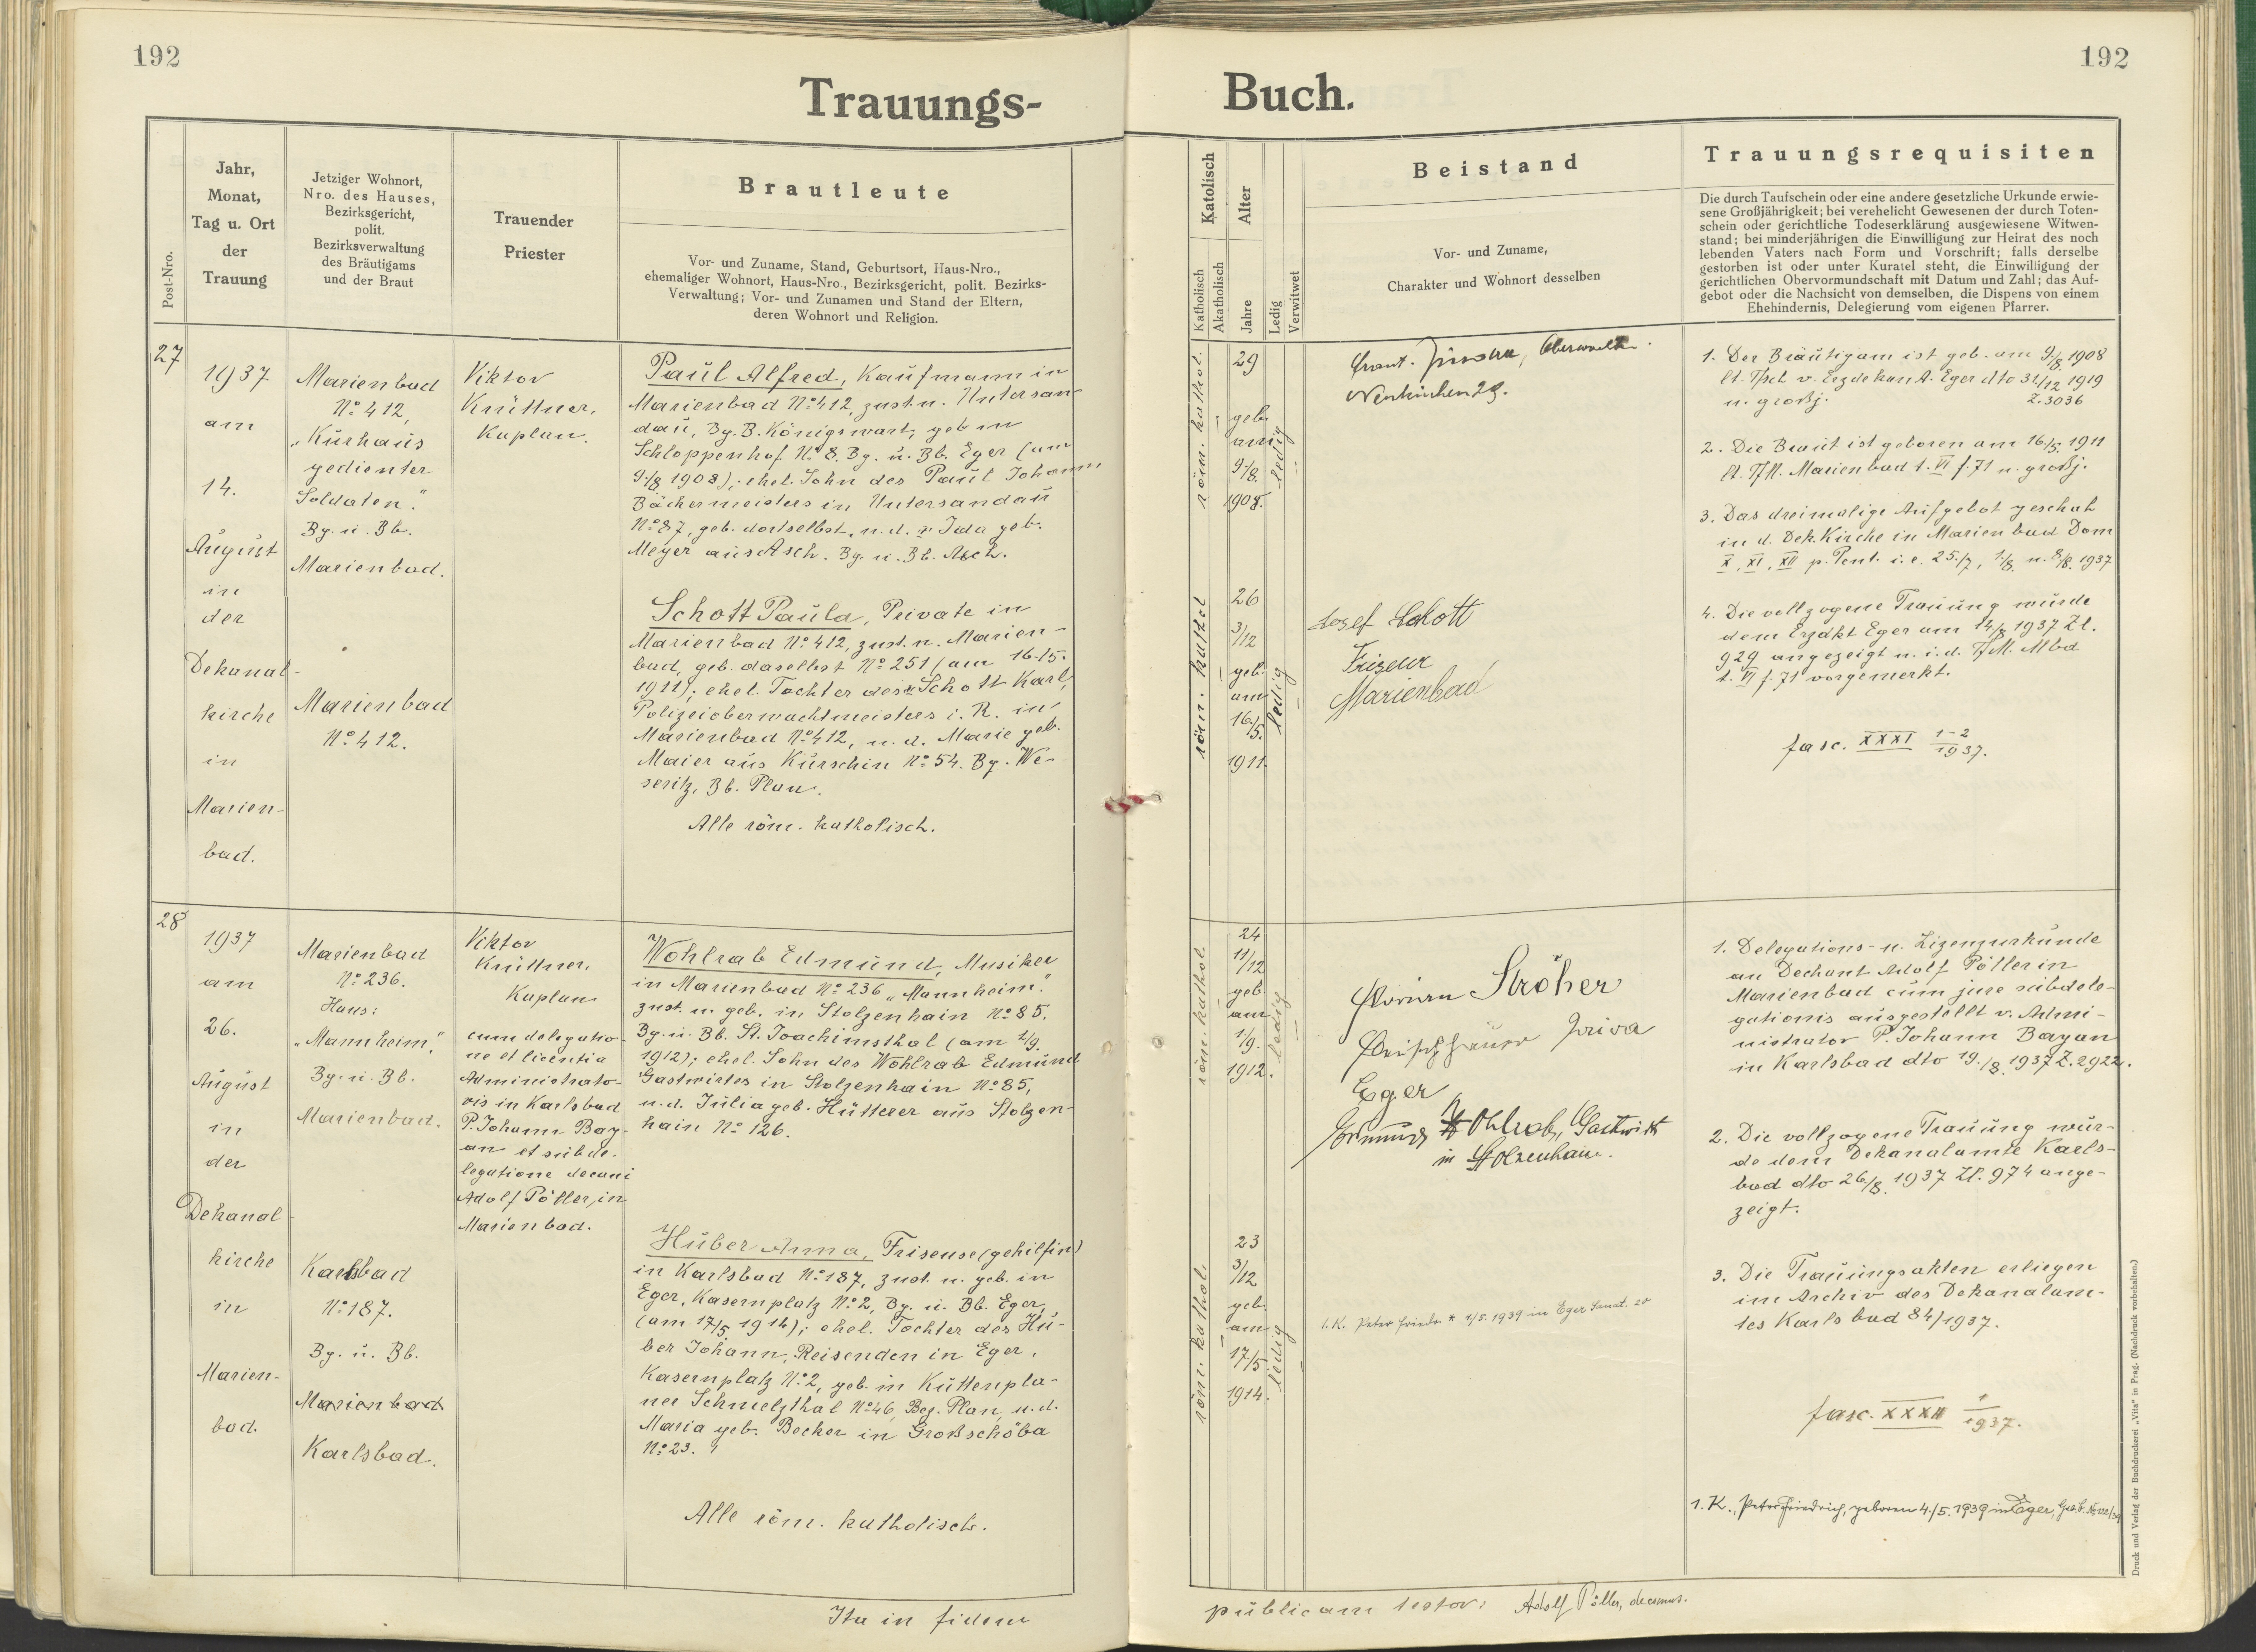 192
192
Trauungs-
Buch.
Post-Nro.
Jahr,
Monat,
Tag u. Ort
der
Trauung
Jetziger Wohnort,
Nro. des Hauses,
Bezirksgericht,
polit.
Bezirksverwaltung
des Bräutigams
und der Braut
Trauender
Priester
Brautleute
Vor- und Zuname, Stand, Geburtsort, Haus-Nro.,
ehemaliger Wohnort, Haus-Nro., Bezirksgericht, polit. Bezirks-
Verwaltung; Vor- und Zunamen und Stand der Eltern,
deren Wohnort und Religion.
Katolisch
Katholisch
Akatholisch
Alter
Jahre
Ledig
Verwitwet
Beistand
Vor- und Zuname,
Charakter und Wohnort desselben
Trauungsrequisiten
Die durch Taufschein oder eine andere gesetzliche Urkunde erwie-
sene Großjährigkeit; bei verehelicht Gewesenen der durch Toten-
schein oder gerichtliche Todeserklärung ausgewiesene Witwen-
stand; bei minderjährigen die Einwilligung zur Heirat des noch
lebenden Vaters nach Form und Vorschrift; falls derselbe
gestorben ist oder unter Kuratel steht, die Einwilligung der
gerichtlichen Obervormundschaft mit Datum und Zahl; das Auf-
gebot oder die Nachsicht von demselben, die Dispens von einem
Ehehindernis, Delegierung vom eigenen Pfarrer.
27
1937
am
14.
August
in
der
Dekanal-
kirche
in
Marien-
bad.
Marienbad
No 412,
"Kurhaus
gedienter
Soldaten."
Bg. u. Bb.
Marienbad.
Marienbad
No 412.
Viktor
Knüttner,
Kaplan.
Paul Alfred, Kaufmann in
Marienbad No 412, zust. n. Untersan-
dau, Bg. B. Königswart, geb in
Schloppenhof No 8. Bg. u. Bb. Eger (am
9./8 1908); ehel. Sohn des Paul Johann
Bäckermeisters in Untersandau
No 87, geb. dortselbst, u. d. Ida geb.
Meyer aus Asch. Bg. u. Bb. Asch.
Schott Paula, Private in
Marienbad No 412, zust. n. Marien-
bad, geb. daselbst No 251 (am 16./5.
1911); ehel. Tochter des Schott Karl,
Polizeioberwachtmeisters i. R. in
Marienbad No 412, u. d. Marie geb.
Maier aus Kurschin No 54. Bg. We-
seritz, Bb. Plan.
Alle röm. katholisch.
röm. kathol.
29
geb.
am
9./8.
1908.
ledig
röm. kathol
26
3/12
geb.
am
16./5.
1911.
ledig
Neukirchen 29.
Josef Schott
Friseur
Marienbad
1. Der Bräutigam ist geb. am 9./8. 1908
lt. Tfsch v. Erzdekan A. Eger dto 31/12 1919
u. großj. Z. 3036
2. Die Braut ist geboren am 16./5. 1911
lt. Tfm. Marienbad t. VI f. 71 u. großj.
3. Das dreimalige Aufgebot geschah
in d. Dek. Kirche in Marienbad Dom
X, XI, XII p. Pent. i. e. 25./7, 1./8. u. 8./8. 1937
4. Die vollzogene Trauung wurde
dem Erzdkt Eger am 14./8 1937 Zl.
929 angezeigt u. i. d. Tf M. Mbd
t. VI f. 71 vorgemerkt.
fasc. XXXI 1-2/1937.
28
1937
am
26.
August
in
der
Dekanal-
kirche
in
Marien-
bad.
Marienbad
No 236.
Haus:
"Mannheim",
Bg. u. Bb.
Marienbad.
Karlsbad
No 187.
Bg. u. Bb.
Marienbad
Karlsbad.
Viktor
Knüttner,
Kaplan
cum delegatio-
ne et licentia
Administrato-
ris in Karlsbad
P. Johann Bay-
an et subde-
legatione decani
Adolf Pöller, in
Marienbad.
Wohlrab Edmund, Musiker
in Marienbad No 236 "Mannheim".
zust. u. geb. in Stolzenhain No 85.
Bg. u. Bb. St. Joachimsthal (am 1/9.
1912); ehel. Sohn des Wohlrab Edmund
Gastwirtes in Stolzenhain No 85,
u. d. Julia geb. Hütterer aus Stolzen-
hain No 126.
Huber Anna, Friseuse (gehilfin)
in Karlsbad No 187, zust. u. geb. in
Eger, Kasernplatz No 2, Bg. u. Bb. Eger,
(am 17/5 1914); ehel. Tochter des Hu-
ber Johann, Reisenden in Eger,
Kasernplatz No 2, geb. in Kuttenpla-
ner Schmelzthal No 46, Bez. Plan, u. d.
Maria geb. Becher in Großschöba
No 23.
Alle röm. katholisch.
röm. kathol
24
11/12
geb.
am
1/9.
1912.
ledig
röm. kathol.
23
3/12
geb.
am
17/5
1914.
ledig
Florian Ströher
Eger
Edmund Wohlrab, Gastwirt
in Stolzenhain.
1. K. Peter Friedr. * 4/5. 1939 in Eger
1. Delegations- u. Lizenzurkunde
an Dechant Adolf Pöller in
Marienbad cum jure subdele-
gationis ausgestellt v. Admi-
nistrator P. Johann Bayan
in Karlsbad dto 19./8. 1937 Z. 2922.
2. Die vollzogene Trauung wur-
de dem Dekanalamte Karls-
bad dto 26/8. 1937 Zl. 974 ange-
zeigt.
3. Die Trauungsakten erliegen
im Archiv des Dekanalam-
tes Karlsbad 84/1937.
fasc. XXXII 1/1937.
1. K., Peter Friedrich, geboren 4./5. 1939 in Eger,
Ita in fidem
publicam testor: Adolf Pöller, decanus.
Druck und Verlag der Buchdruckerei „Vita" in Prag. (Nachdruck vorbehalten.)